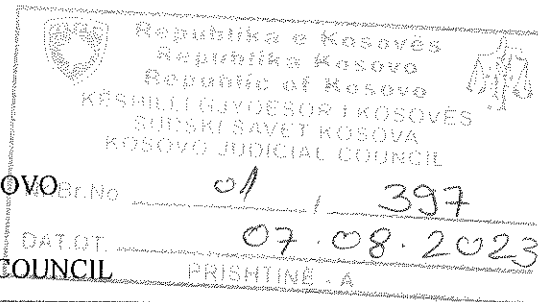 Republika e Kosovës
Republika Kosova
Republic of Kosovo
KËSHILLI GJYQËSOR I KOSOVËS
SUDSKI SAVET KOSOVA
KOSOVO JUDICIAL COUNCIL
OVO Nr.Br.No 01 / 397
DAT.DT. 07.08.2023
COUNCIL PRISHTINË - A